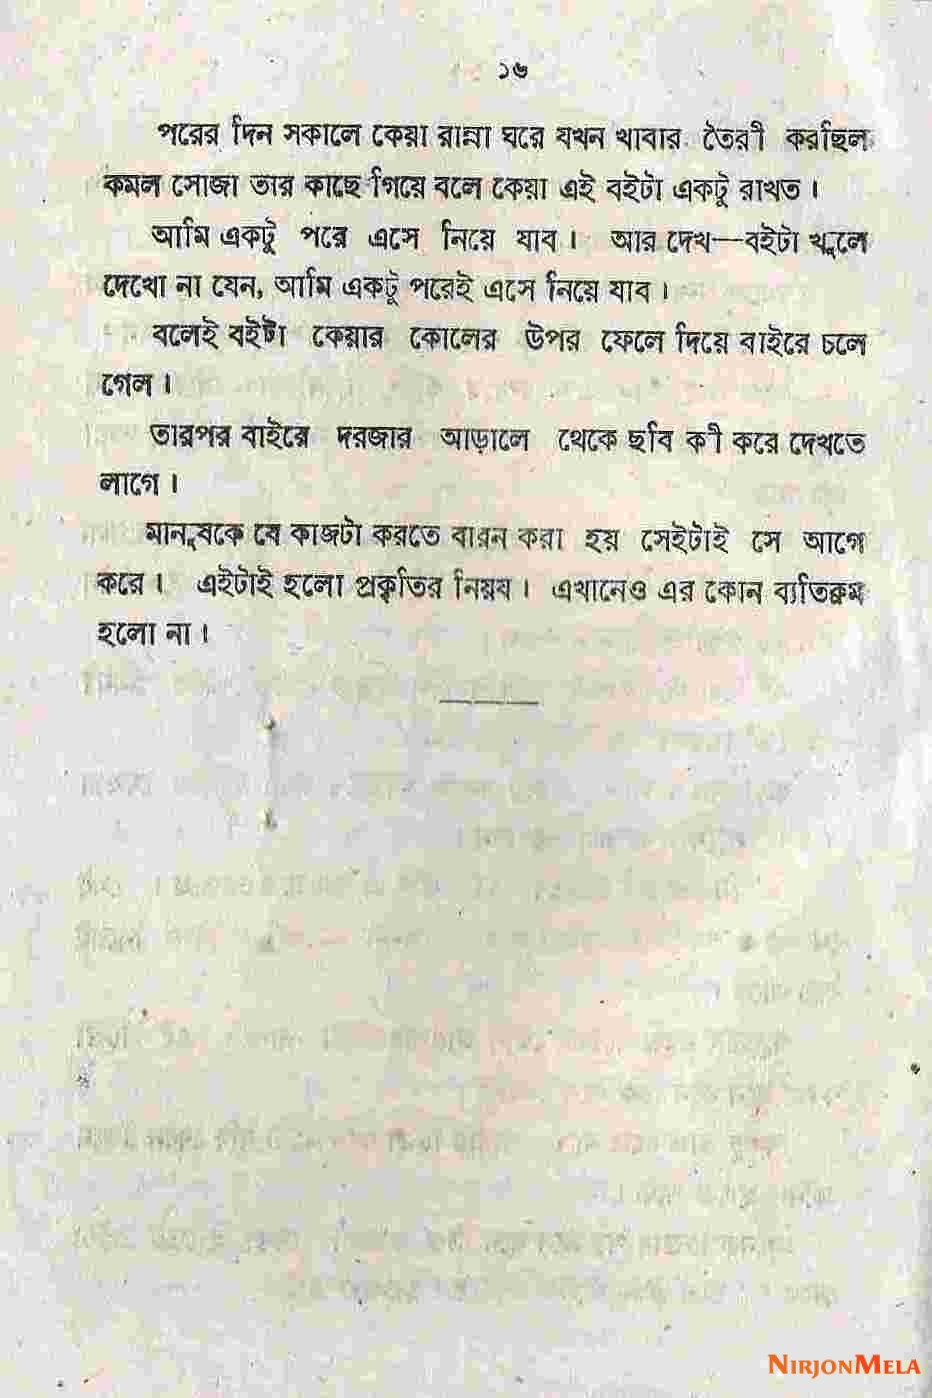 ১৬
পরের দিন সকালে কেয়া রান্না ঘরে যখন খাবার তৈরী করছিল
কমল সোজা তার কাছে গিয়ে বলে কেয়া এই বইটা একটু রাখত।
আমি একটু পরে এসে নিয়ে যাব। আর দেখ—বইটা খুলে
দেখো না যেন, আমি একটু পরেই এসে নিয়ে যাব।
বলেই বইটা কেয়ার কোলের উপর ফেলে দিয়ে বাইরে চলে
গেল।
তারপর বাইরে দরজার আড়ালে থেকে ছবি কী করে দেখতে
লাগে।
মানুষকে যে কাজটা করতে বারন করা হয় সেইটাই সে আগে
করে। এইটাই হলো প্রকৃতির নিয়ব। এখানেও এর কোন ব্যতিক্রম
হলো না।
NIRJONMELA